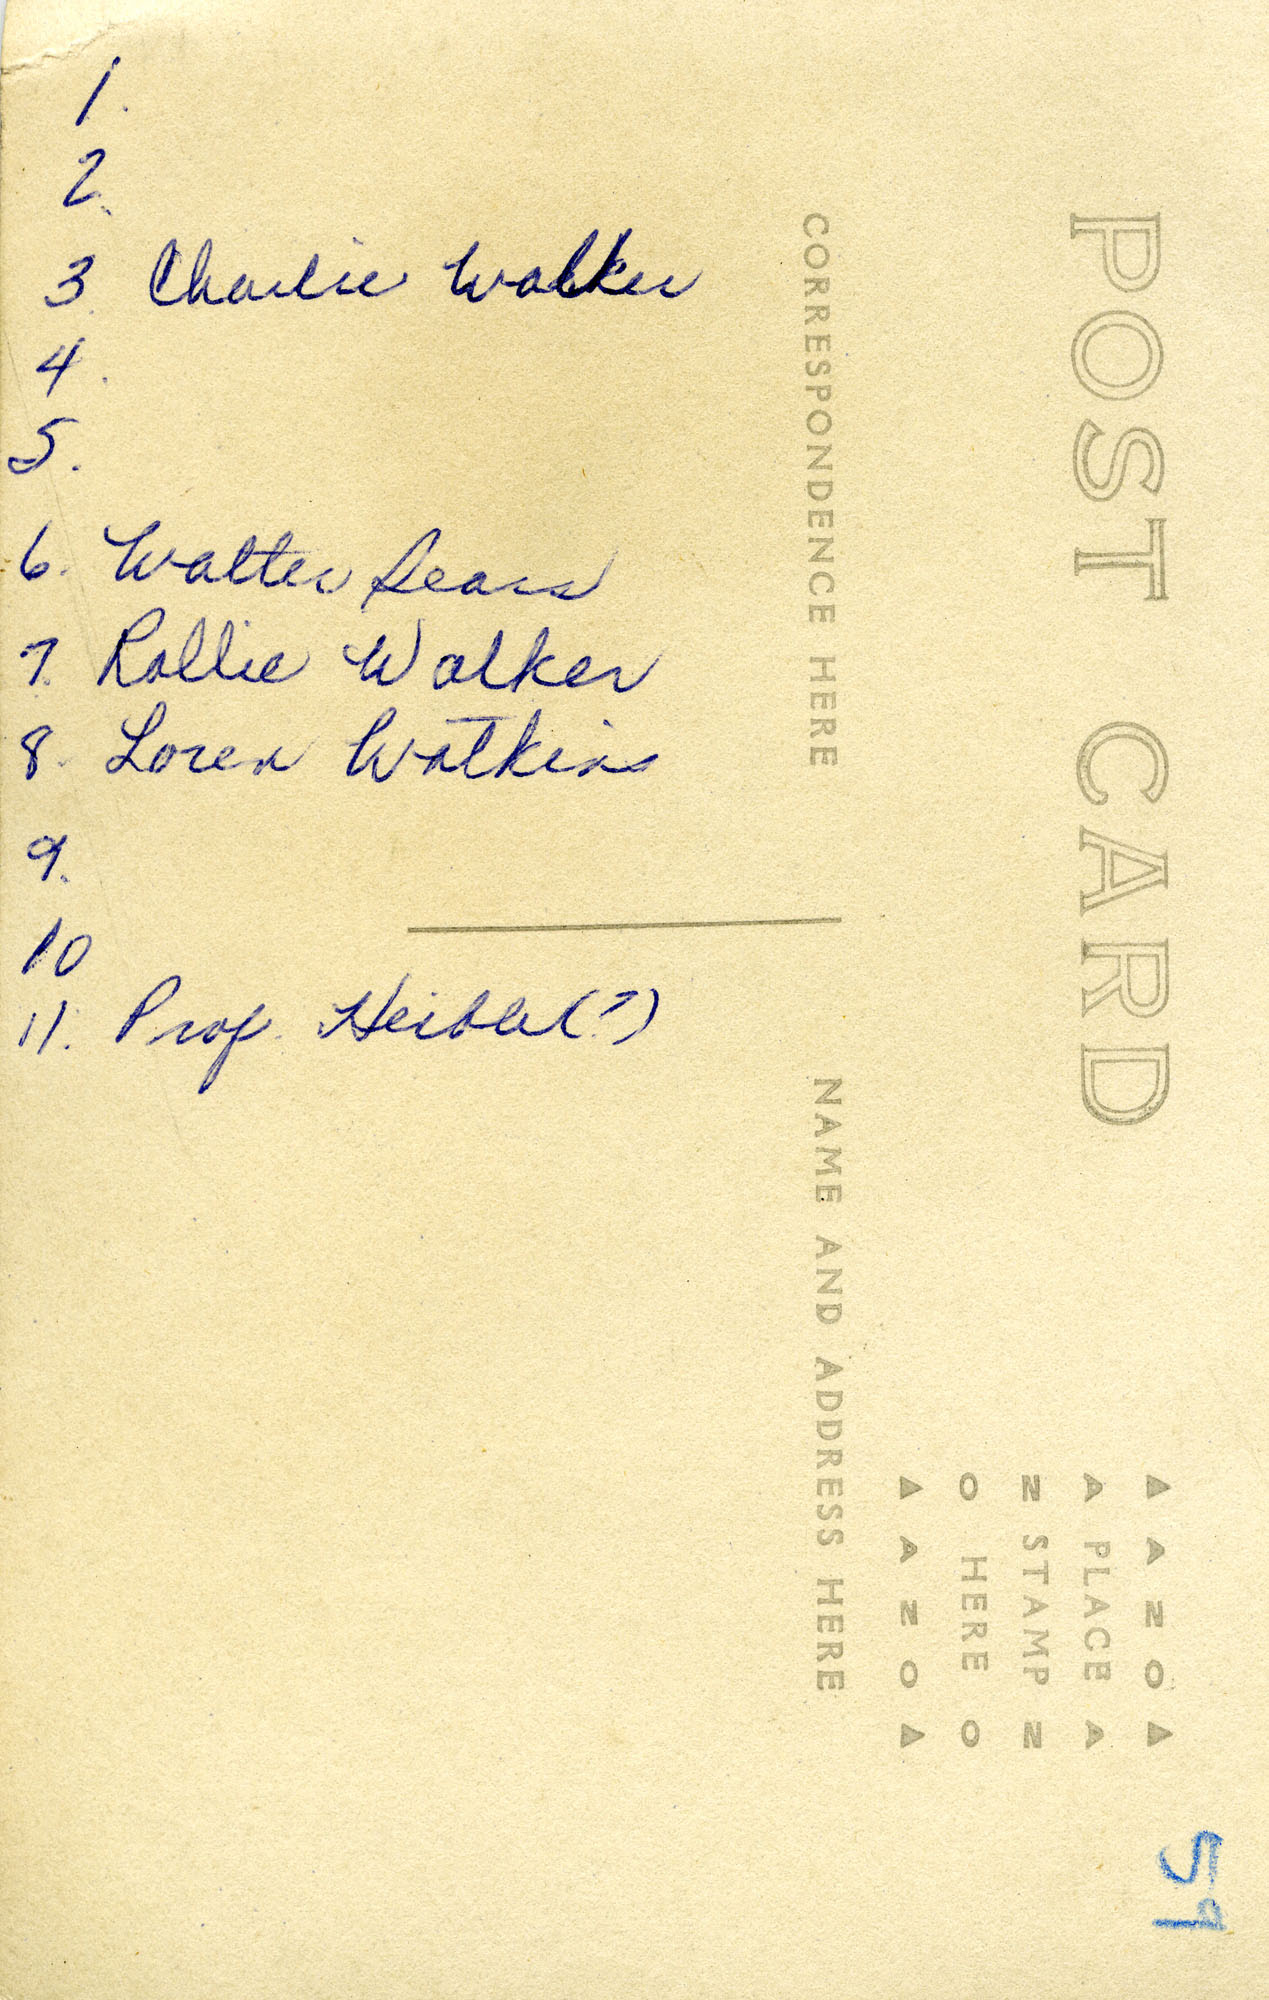 1.
2.
3. Charlie Walker
4.
5.
6. Walter Sears
7. Rollie Walker
8. Loren Watkins
9.
10
11. Prof. (?)
POST CARD
CORRESPONDENCE HERE
NAME AND ADDRESS HERE
PLACE
STAMP
HERE
▲ A Z O ▲
A A
Z Z
O O
▲ A Z O ▲
59